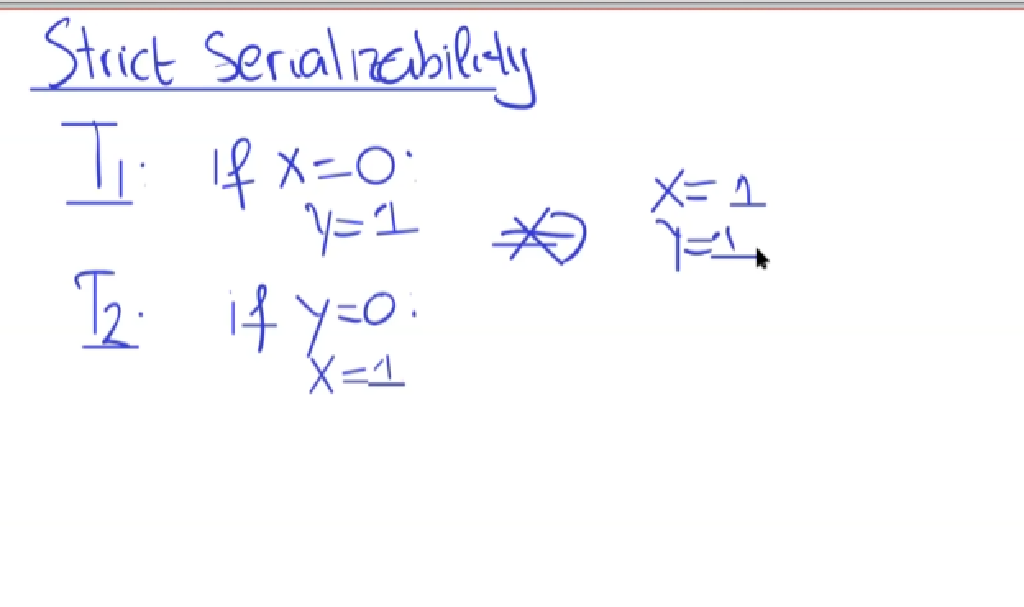 Strict Serializability
T1: if x=0:
y=1
T2: if y=0:
x=1
⇏
x=1
y=1